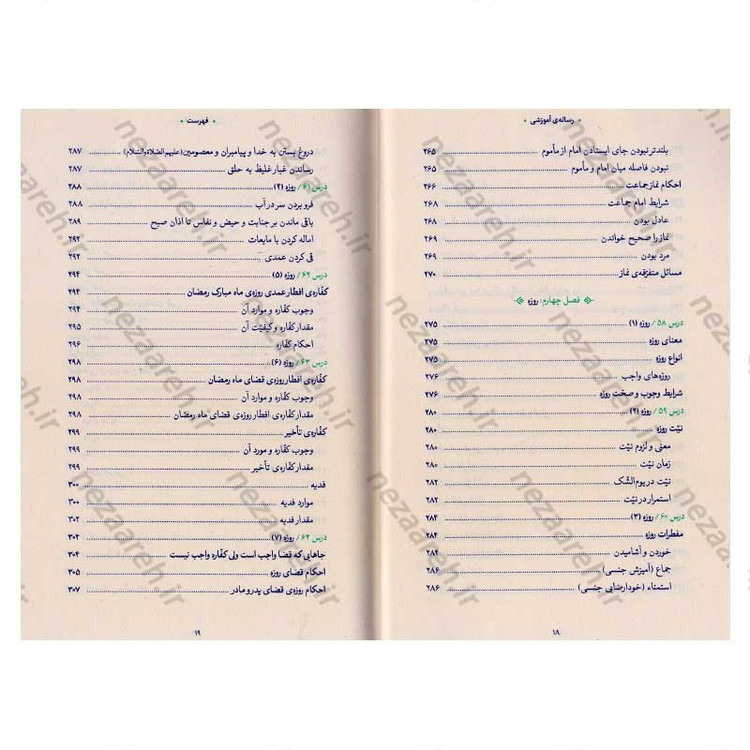 رساله‌ی آموزشی
بلندتر نبودن جای ایستادن امام از مأموم ۲۶۵
نبودن فاصله میان امام و مأموم ۲۶۵
احکام نماز جماعت ۲۶۶
شرایط امام جماعت ۲۶۸
عادل بودن ۲۶۸
نماز را صحیح خواندن ۲۶۹
مرد بودن ۲۶۹
مسائل متفرّقه‌ی نماز ۲۷۰
فصل چهارم: روزه
درس ۵۸/ روزه (۱) ۲۷۵
معنای روزه ۲۷۵
انواع روزه ۲۷۵
روزه‌های واجب ۲۷۶
شرایط وجوب و صحّت روزه ۲۷۶
درس ۵۹/ روزه (۲) ۲۸۰
نیّت روزه ۲۸۰
معنی و لزوم نیّت ۲۸۰
زمان نیّت ۲۸۰
نیّت در یوم‌الشّک ۲۸۲
استمرار در نیّت ۲۸۲
درس ۶۰/ روزه (۳) ۲۸۴
مفطرات روزه ۲۸۴
خوردن و آشامیدن ۲۸۴
جماع (آمیزش جنسی) ۲۸۶
استمناء (خودارضایی جنسی) ۲۸۶
۱۸
فهرست
دروغ بستن به خدا و پیامبران و معصومین (علیهم‌الصّلاة‌والسّلام) ۲۸۷
رساندن غبار غلیظ به حلق ۲۸۷
درس ۶۱/ روزه (۴) ۲۸۸
فرو بردن سر در آب ۲۸۸
باقی ماندن بر جنابت و حیض و نفاس تا اذان صبح ۲۸۹
اماله کردن با مایعات ۲۹۲
قی کردن عمدی ۲۹۲
درس ۶۲/ روزه (۵) ۲۹۴
کفّاره‌ی افطار عمدی روزه‌ی ماه مبارک رمضان
وجوب کفّاره و موارد آن ۲۹۴
مقدار کفّاره و کیفیّت آن ۲۹۵
احکام کفّاره ۲۹۶
درس ۶۳/ روزه (۶) ۲۹۸
کفّاره‌ی افطار روزه‌ی قضای ماه رمضان ۲۹۸
وجوب کفّاره و موارد آن ۲۹۸
مقدار کفّاره‌ی افطار روزه‌ی قضای ماه رمضان ۲۹۸
کفّاره‌ی تأخیر ۲۹۹
وجوب کفّاره و مورد آن ۲۹۹
مقدار کفّاره‌ی تأخیر ۲۹۹
فدیه ۳۰۰
موارد فدیه ۳۰۰
مقدار فدیه ۳۰۲
درس ۶۴/ روزه (۷) ۳۰۴
جاهایی که قضا واجب است ولی کفّاره واجب نیست ۳۰۴
احکام قضای روزه ۳۰۵
احکام روزه‌ی قضای پدر و مادر ۳۰۷
۱۹
nezaareh.ir